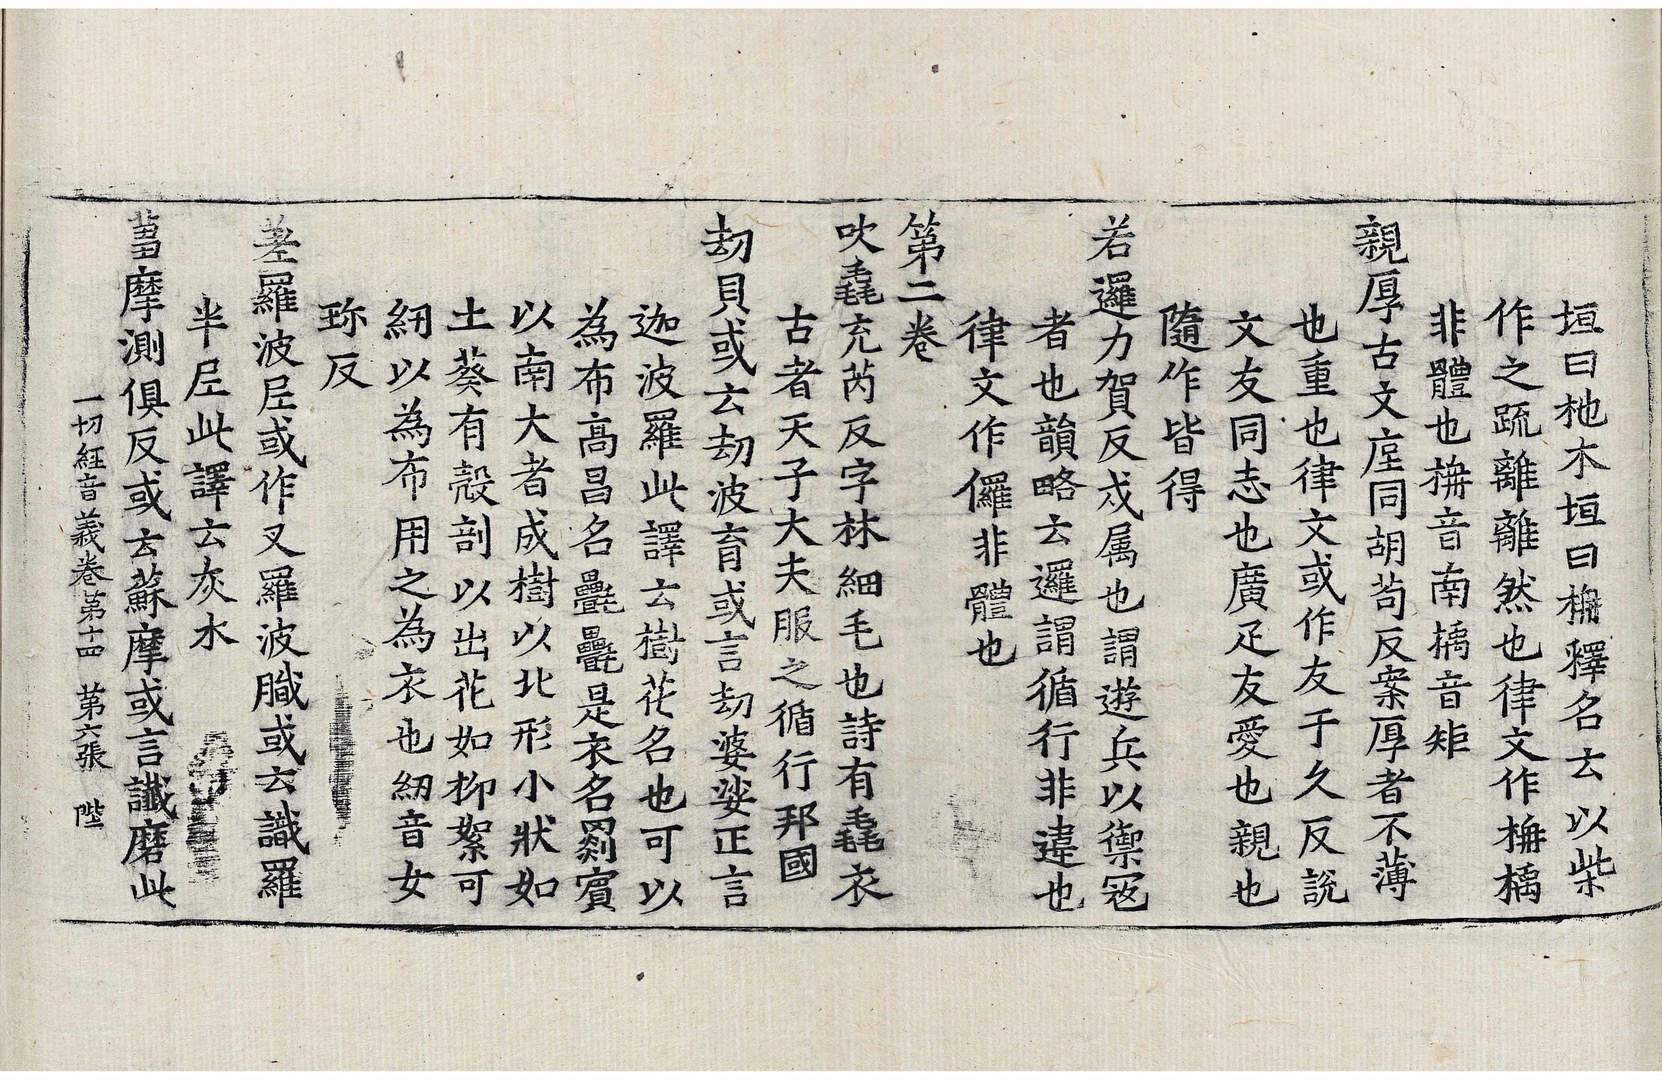 垣曰杝木垣曰柵釋名云以柴
作之疏離離然也律文作栴檽
非體也栴音南檽音矩
親厚古文垕同胡苟反案厚者不薄
也重也律文或作友于久反説
文友同志也廣疋友愛也親也
隨作皆得
若邏力賀反戍属也謂遊兵以禦冦
者也韻略云邏謂循行非違也
律文作儸非體也
第二卷
吹毳充芮反字林細毛也詩有毳衣
古者天子大夫服之循行邦國
劫貝或云劫波育或言劫婆娑正言
迦波羅此譯云樹花名也可以
為布高昌名氎氎是衣名罽賓
以南大者成樹以北形小狀如
土葵有殼剖以出花如柳絮可
紉以為布用之為衣也紉音女
珎反
差羅波尼或作叉羅波膱或云識羅
半尼此譯云灰水
葍摩測俱反或云蘇摩或言讖磨此
一切經音義卷第十四 第六張 陛